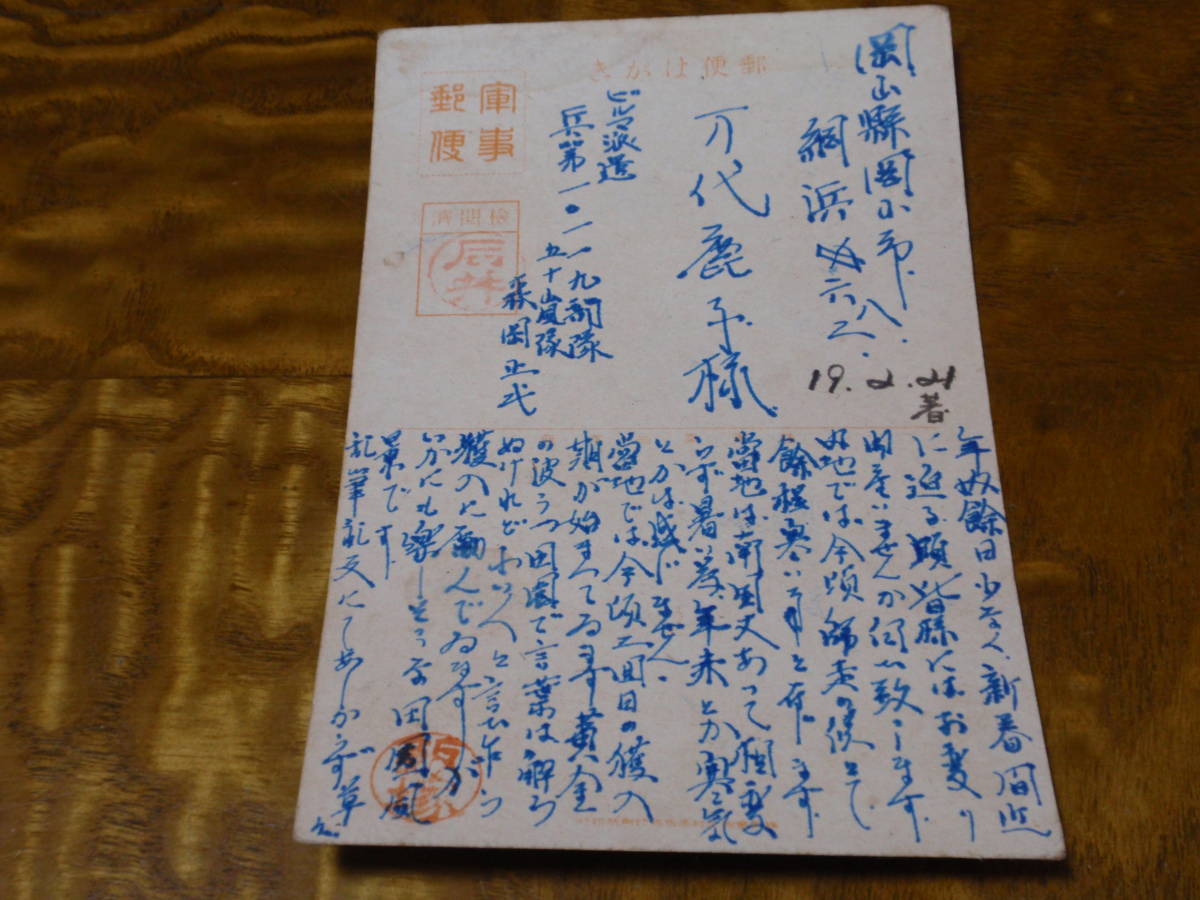 郵便はがき
軍事
郵便
検閲済
岡山縣岡山市
網浜六八二
万代鹿子様
ビルマ派遣
兵第一〇一一九部隊
五十嵐隊
森岡正弐
19.2.21
着
年内余日少なく、新春間近
に迫る頃皆様にはお変り
御座いませんか伺ひ致します
内地では今頃師走の候とて
餘程寒い事と存じます
當地は南国丈あって相変
らず暑い為、年末とか寒気
とかは感じません、
當地では今頃二回目の穫入
期が始まってゐます、黄金
の波うつ田園で言葉は解ら
ぬけれど と言ひ乍ら
穫入に勵んでゐますが
いかにも楽しさうな田園風
景です
乱筆乱文にてあしからず草々